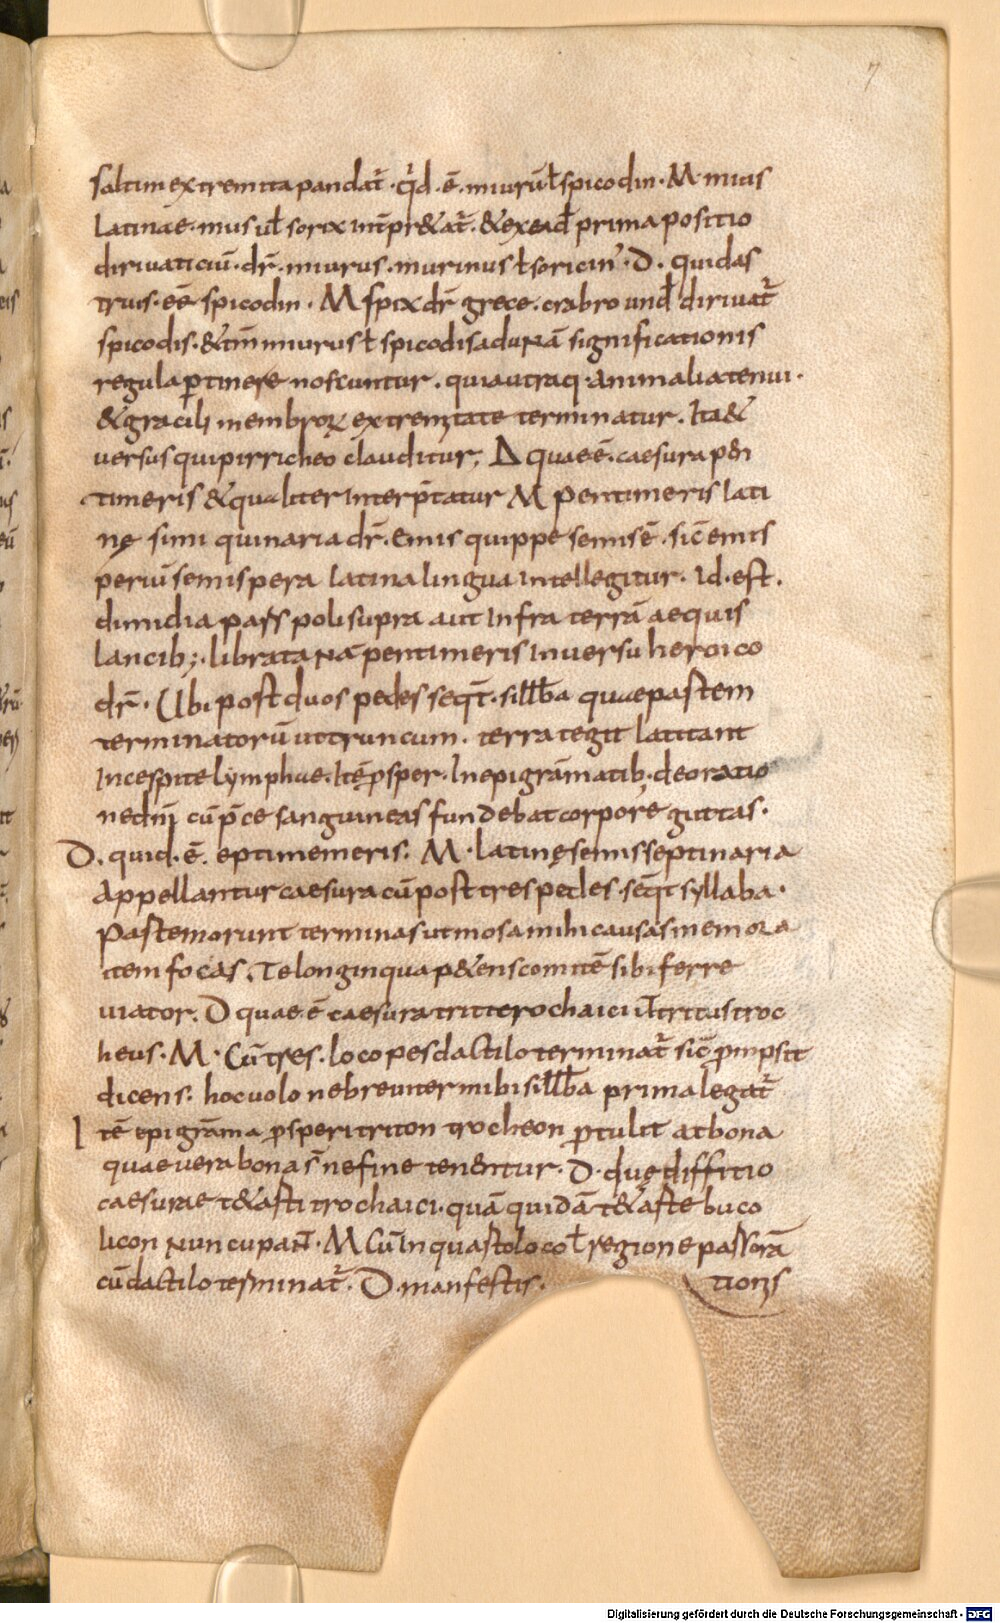 7
saltim extremitas pandat̄·q̄d·ē·miurūƚ spicodin·M·miis
Latinae·mus uƚ sorix int̄pr&at̄·& ex ead̄ prima positio
dirivaticiū·dr̄·miurus·murinus ƚ soricin᾽·D·quid as
truis·eē spicodin·M spix dr̄ grece·crabro und̄ dirivat̄
spicodis·& tm̄ miurus ƚ spicodis ad unā significationis
regula ꝑtinere noscuntur·quia utraq·animalia tenui·
& gracili membroꝝ extremitate terminatur·Ita &
versus qui pirricheo clauditur; Δ quae ē·caesura pen
timeris & qualiter interp̄tatur M pentimeris lati
nę simi quinaria dr̄·emis quippe semis ē·sic̄ emis
periū semispera latina lingua intellegitur·Id·est·
dimidia pars poli supra aut infra terrā aequis
lancib;·librata nā pentimeris in versu heroico
dr̄·Ubi post duos pedes seqt̄·sillƀa quae pastem
terminatorū ut truncum·terra tegit latitant
In cespite lymphae·Itē ꝓsper·In epigrāmatib;·de oratio
ne dn̄i cū p̄ce sanguineas fundebat corpore guttas·
D·quid·ē·eptimemeris: M·latinę semisseptinaria
appellantur caesura cū post tres pedes·seqt̄ syllaba·
pastem orunt terminas ut mosa mihi causas memora
item focas·Te longinqua p&ens comitē sibi ferre
viator·D quae·ē caesura trititrochaici uƚ tritus troc
heus·M·Cū tres·loco pes dactilo terminat̄ sic̄ prompsit
dicens: hoc volo ne breviter mihi sillƀa prima legat̄
Itē epigrāma ꝓsperi triton trocheon ꝓtulit at bona
quae vera bona s̄ ne fine tenentur·D·quę diffitio
caesurae t&asti trochaici·quā quidā t&aste buco
licon nuncupan̄t·M Cū In quasto loco ƚ regione passorā
cū dactilo terminat̄·D·manfestis· tionis
Digitalisierung gefördert durch die Deutsche Forschungsgemeinschaft - DFG